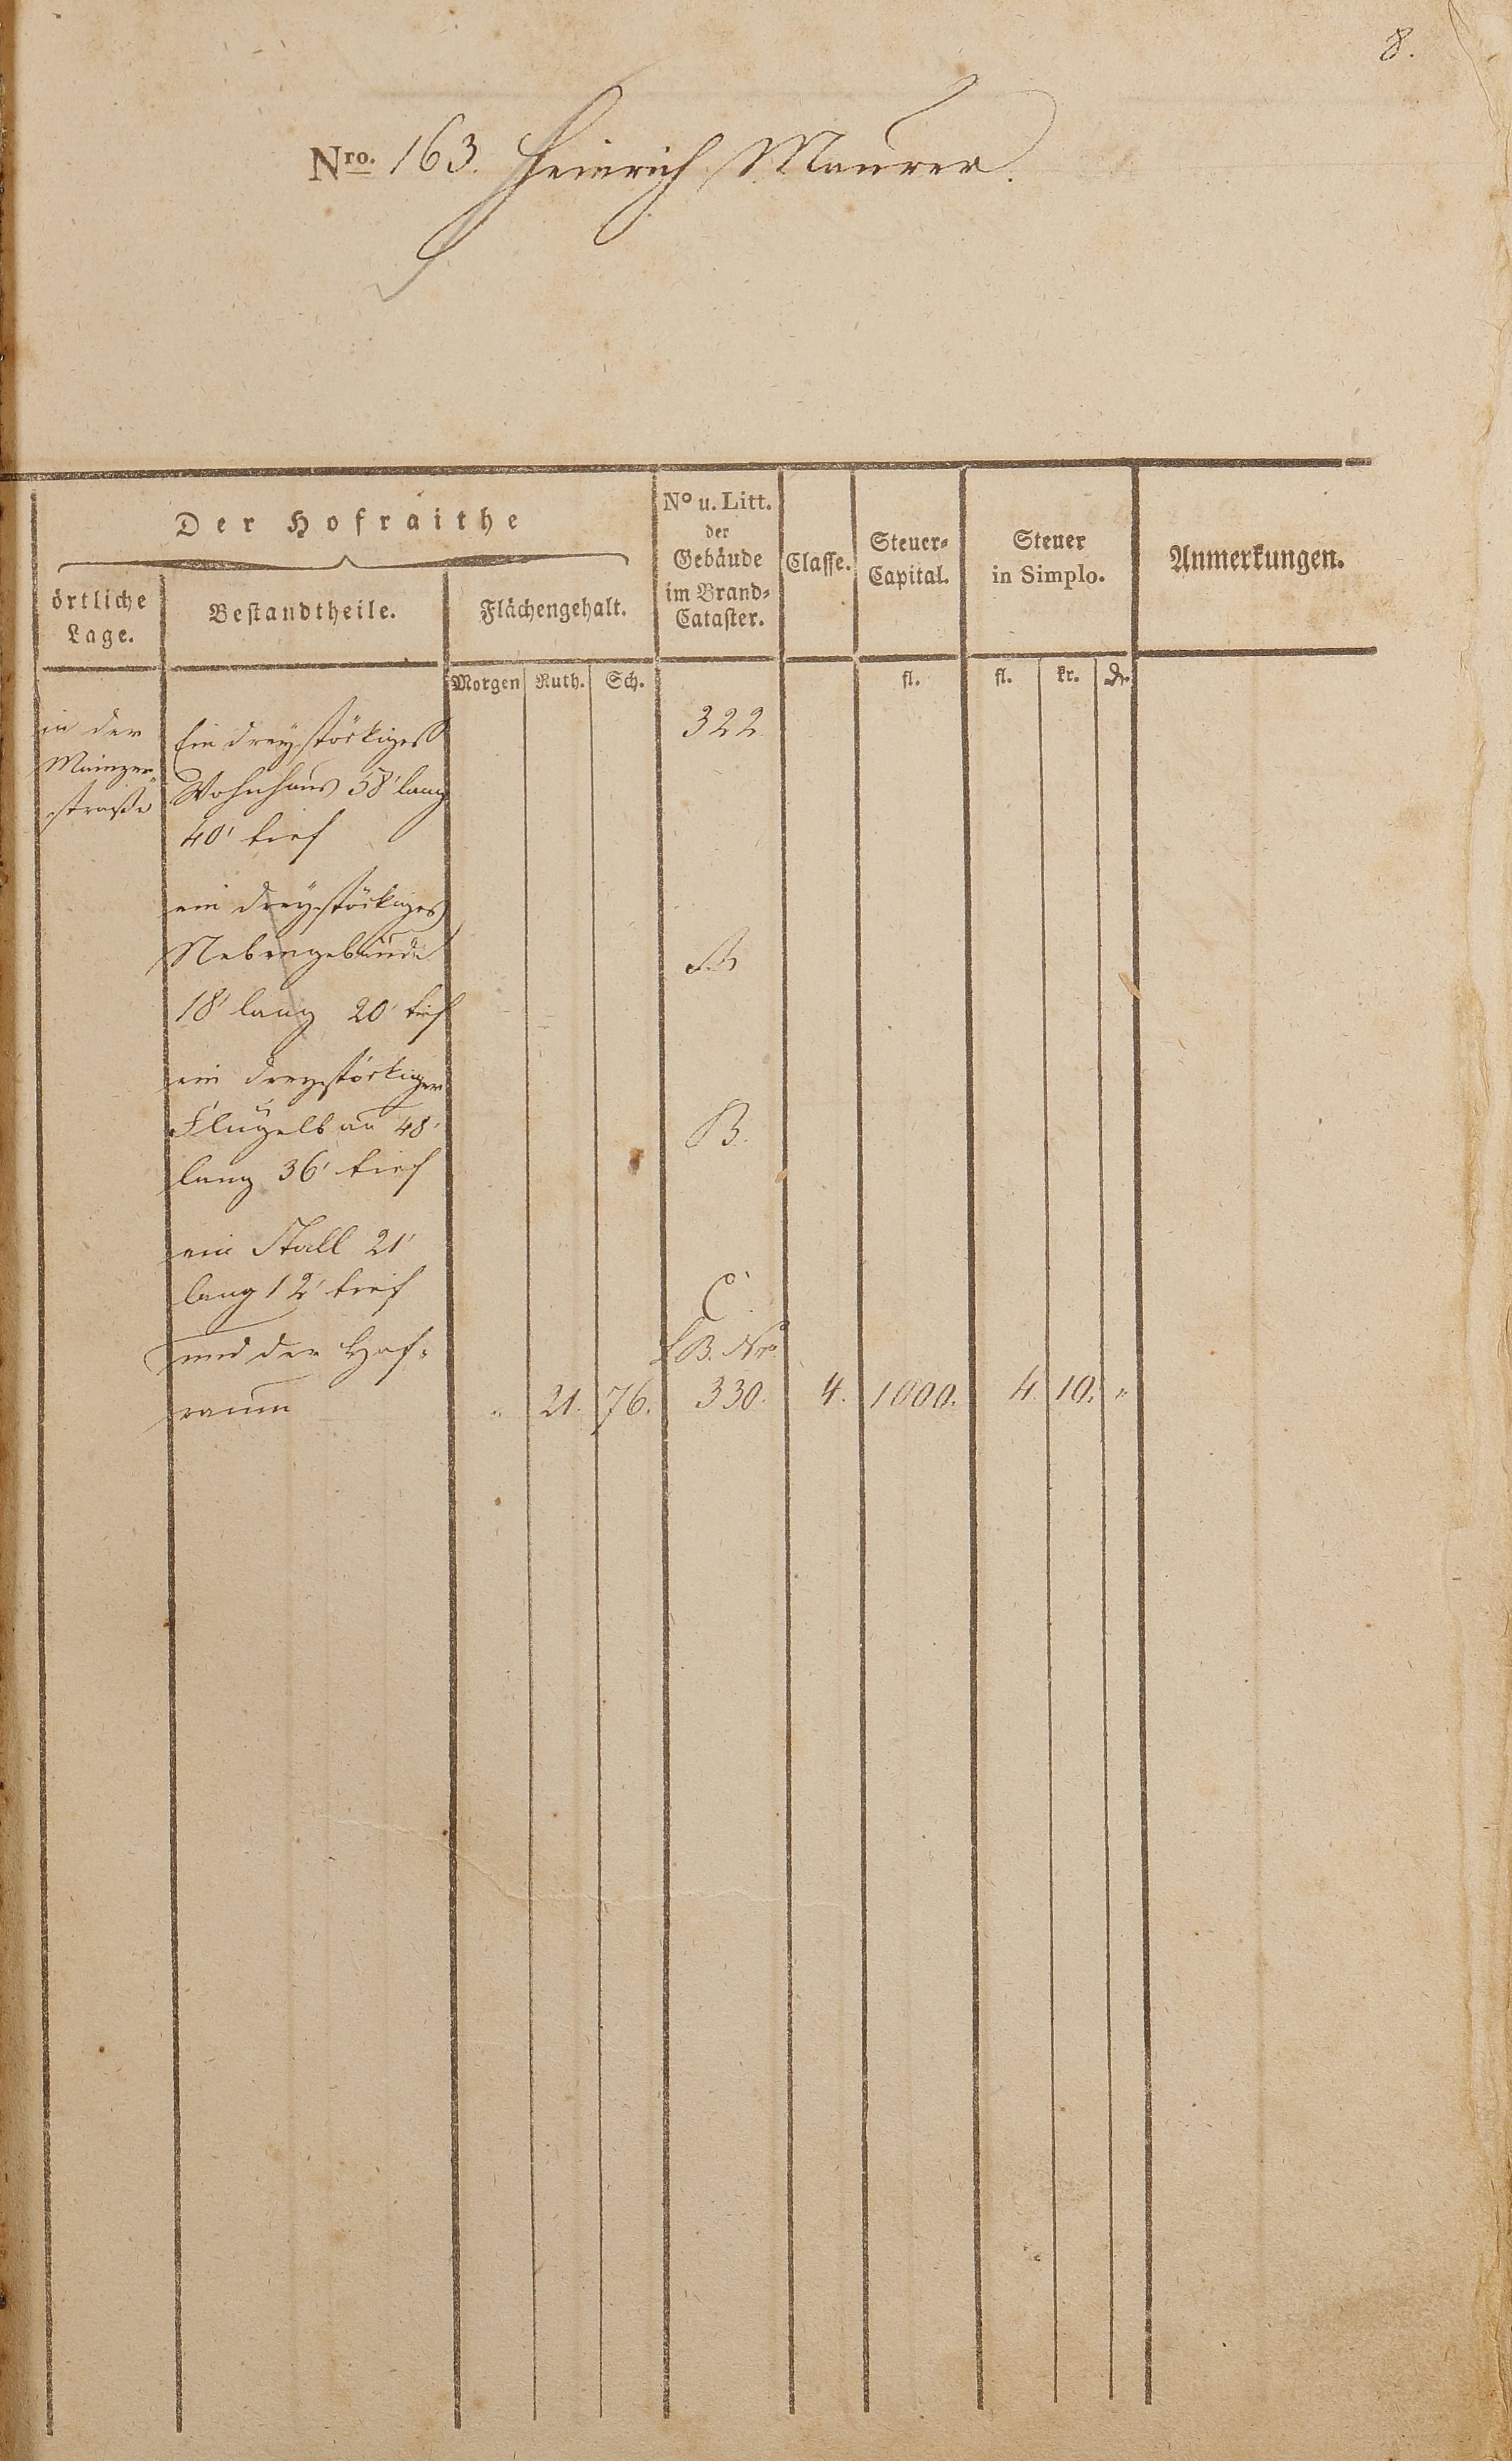 8.
Nro. 163. Heinrich Maurer.
Der Hofraithe
örtliche
Lage.
Bestandtheile.
Flächengehalt.
No u. Litt.
der
Gebäude
im Brand-
Cataster.
Classe.
Steuer-
Capital.
Steuer
in Simplo.
Anmerkungen.
Morgen Ruth. Sch.
fl.
fl. kr.
in der
Mainzer-
straße
Ein dreystöckiges 322
Wohnhaus 58' lang
40' tief
ein dreystöckiges
Nebengebäude A
18' lang 20' tief
ein dreystöckiger
Flügelbau 48' B.
lang 36' tief
ein Stall 21'
lang 12' tief C.
und der Hof- B. Nr.
raum " 21. 76. 330. 4. 1000. 4. 10. "